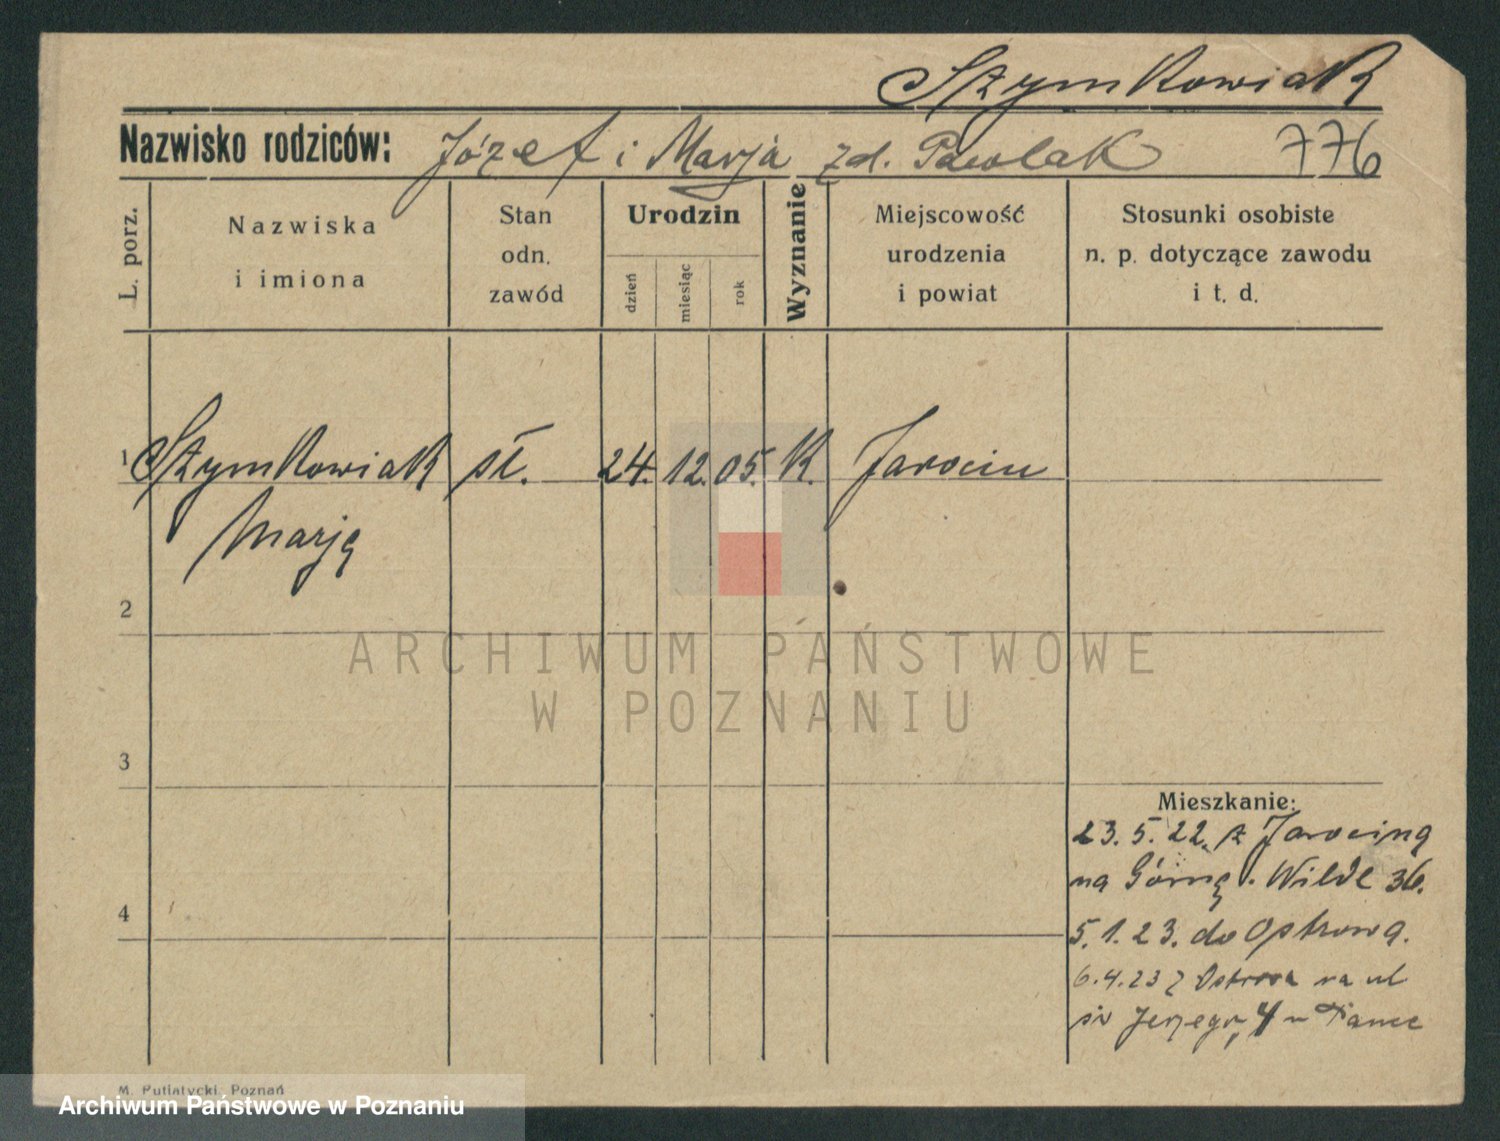 Szymkowiak
Nazwisko rodziców: Józef i Marja zd. Pawlak 776
L. porz.
Nazwiska
i imiona
Stan
odn.
zawód
Urodzin
dzień
miesiąc
rok
Wyznanie
Miejscowość
urodzenia
i powiat
Stosunki osobiste
n. p. dotyczące zawodu
i t. d.
1 Szymkowiak sł. 24. 12. 05. K. Jarocin
Marja
2
ARCHIWUM PAŃSTWOWE
W POZNANIU
3
Mieszkanie:
23. 5. 22. z Jarocina
na Górną. Wildę 36.
4
5. 1. 23. do Ostrowa.
6.4.23 z Ostrowa na ul
św Jerzego 4
M. Putiatycki, Poznań
Archiwum Państwowe w Poznaniu